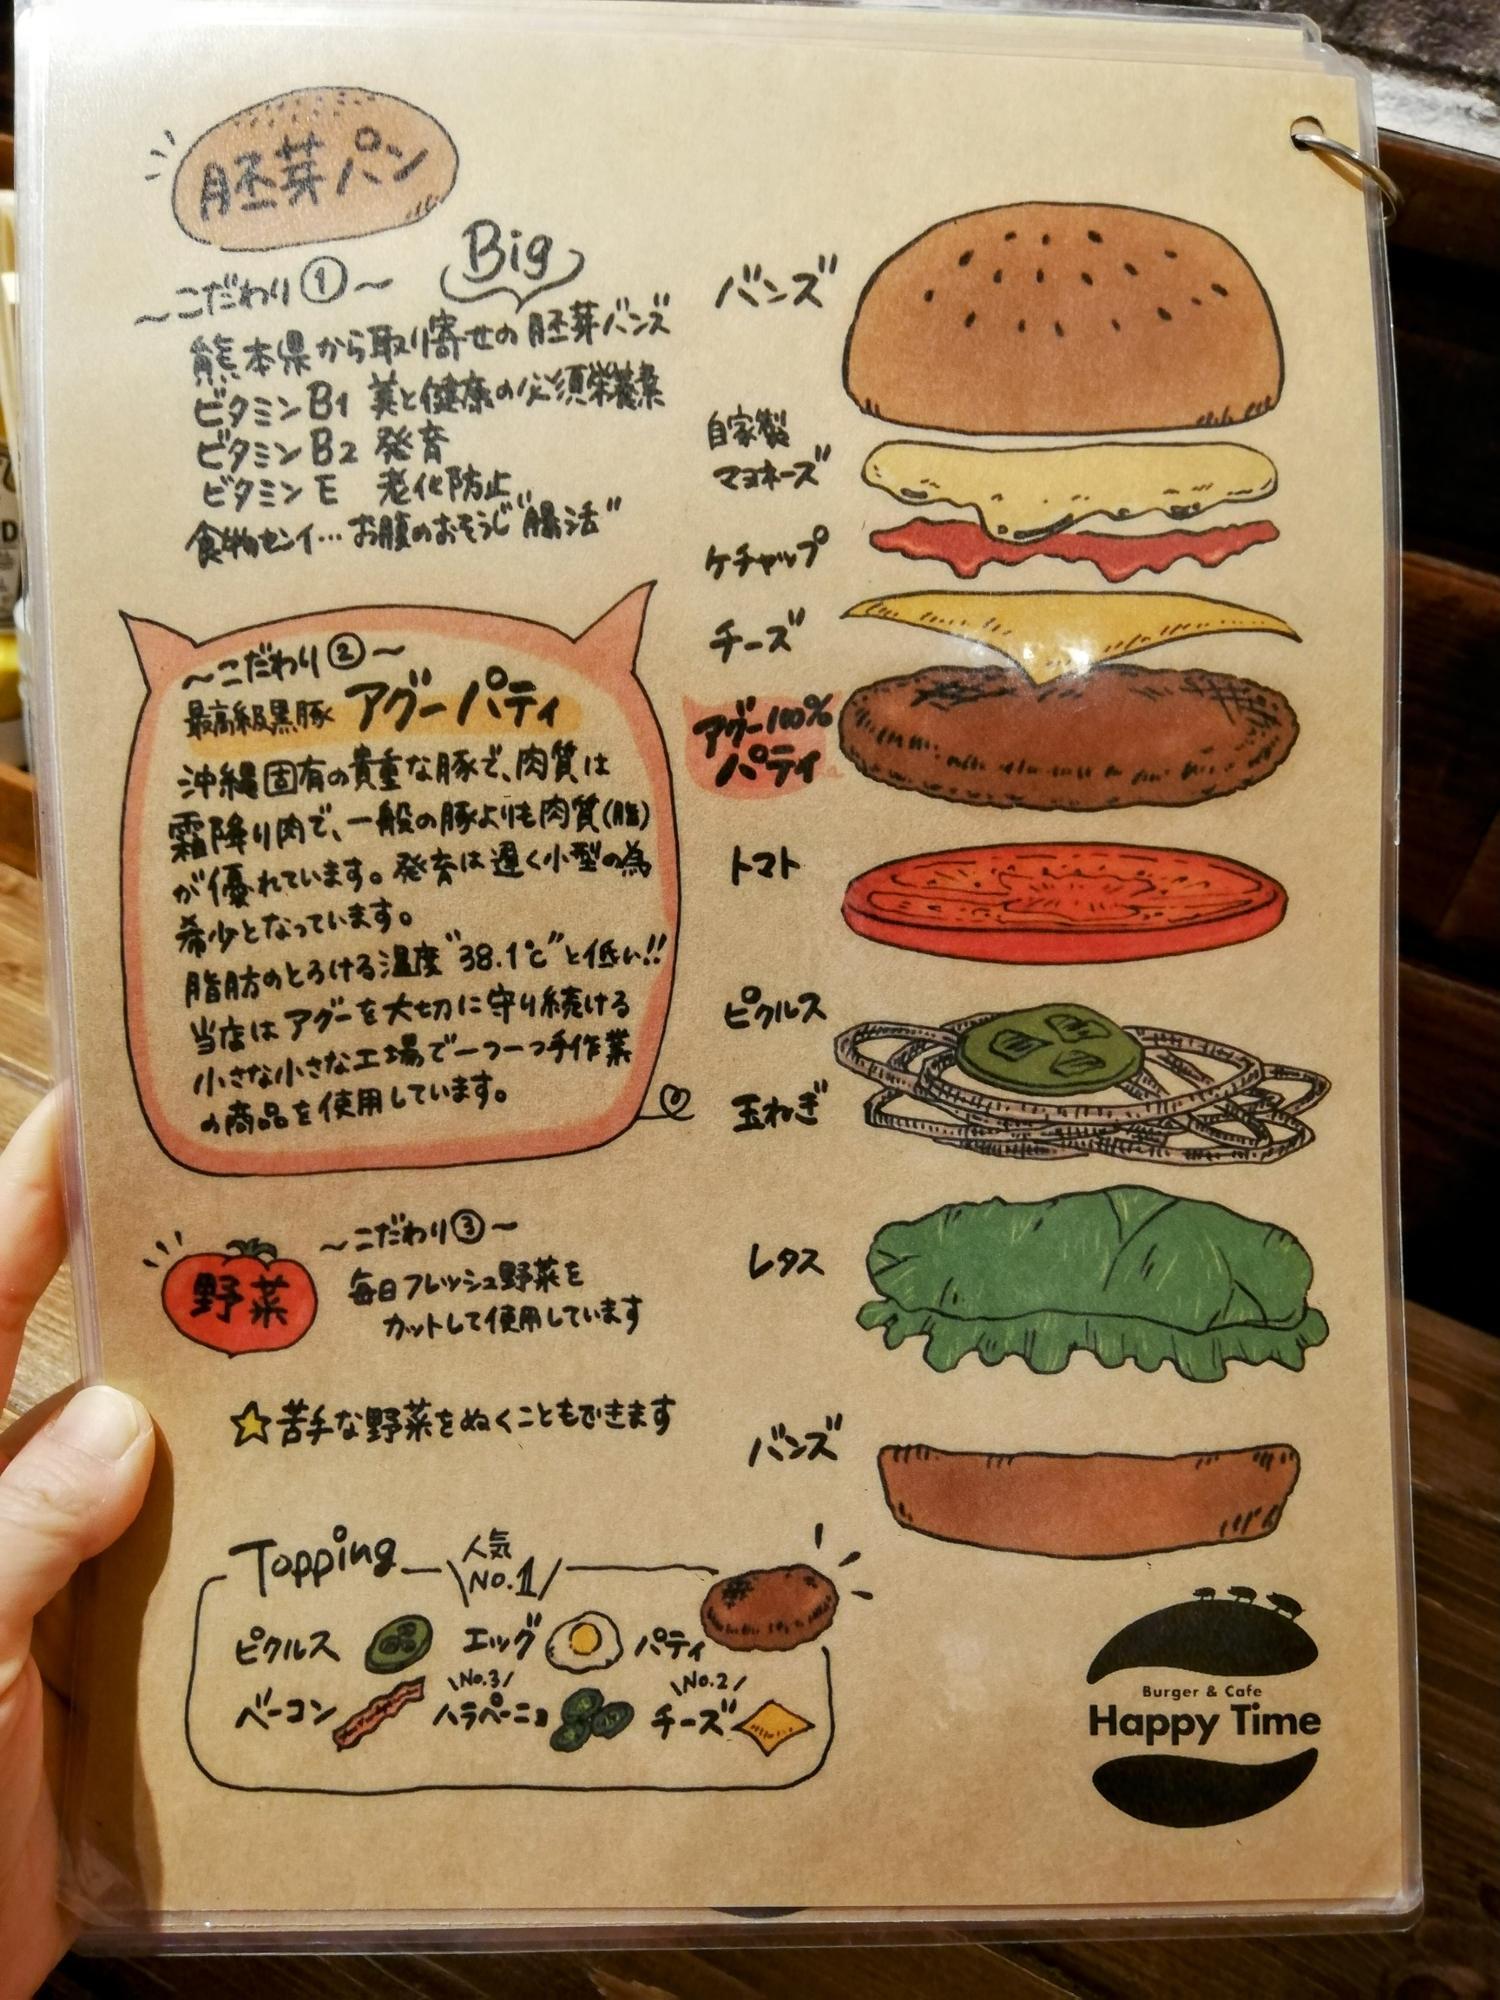 胚芽パン
～こだわり①～
Big
熊本県から取り寄せの胚芽バンズ
ビタミンB1 美と健康の必須栄養素
ビタミンB2 発育
ビタミンE 老化防止
食物センイ…お腹のおそうじ"腸活"
～こだわり②～
最高級黒豚 アグーパティ
沖縄固有の貴重な豚で、肉質は
霜降り肉で、一般の豚よりも肉質(脂)
が優れています。発育は遅く小型の為
希少となっています。
脂肪のとろける温度"38.1℃"と低い!!
当店はアグーを大切に守り続ける
小さな小さな工場で一つ一つ手作業
の商品を使用しています。
野菜
～こだわり③～
毎日フレッシュ野菜を
カットして使用しています
☆苦手な野菜をぬくこともできます
バンズ
自家製
マヨネーズ
ケチャップ
チーズ
アグー100%
パティ
トマト
ピクルス
玉ねぎ
レタス
バンズ
Topping
人気
No.1
ピクルス エッグ パティ
No.3 No.2
ベーコン ハラペーニョ チーズ
Burger & Cafe
Happy Time